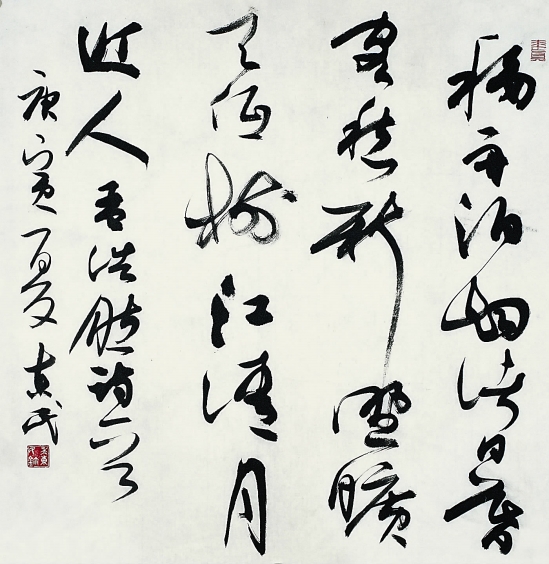 移舟泊烟渚日暮
客愁新野曠
天低樹江清月
近人孟浩然詩一首
庚寅夏